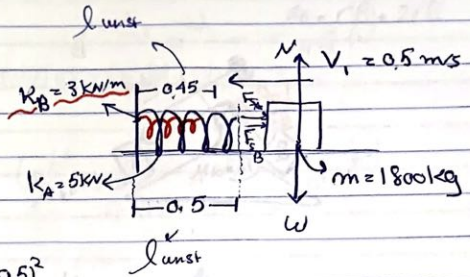 l unst
N
V₁ = 0,5 m/s
K_B = 3 kN/m
0,45
B
k_A = 5kN
m = 1800kg
0,5
W
l unst
0,5)²